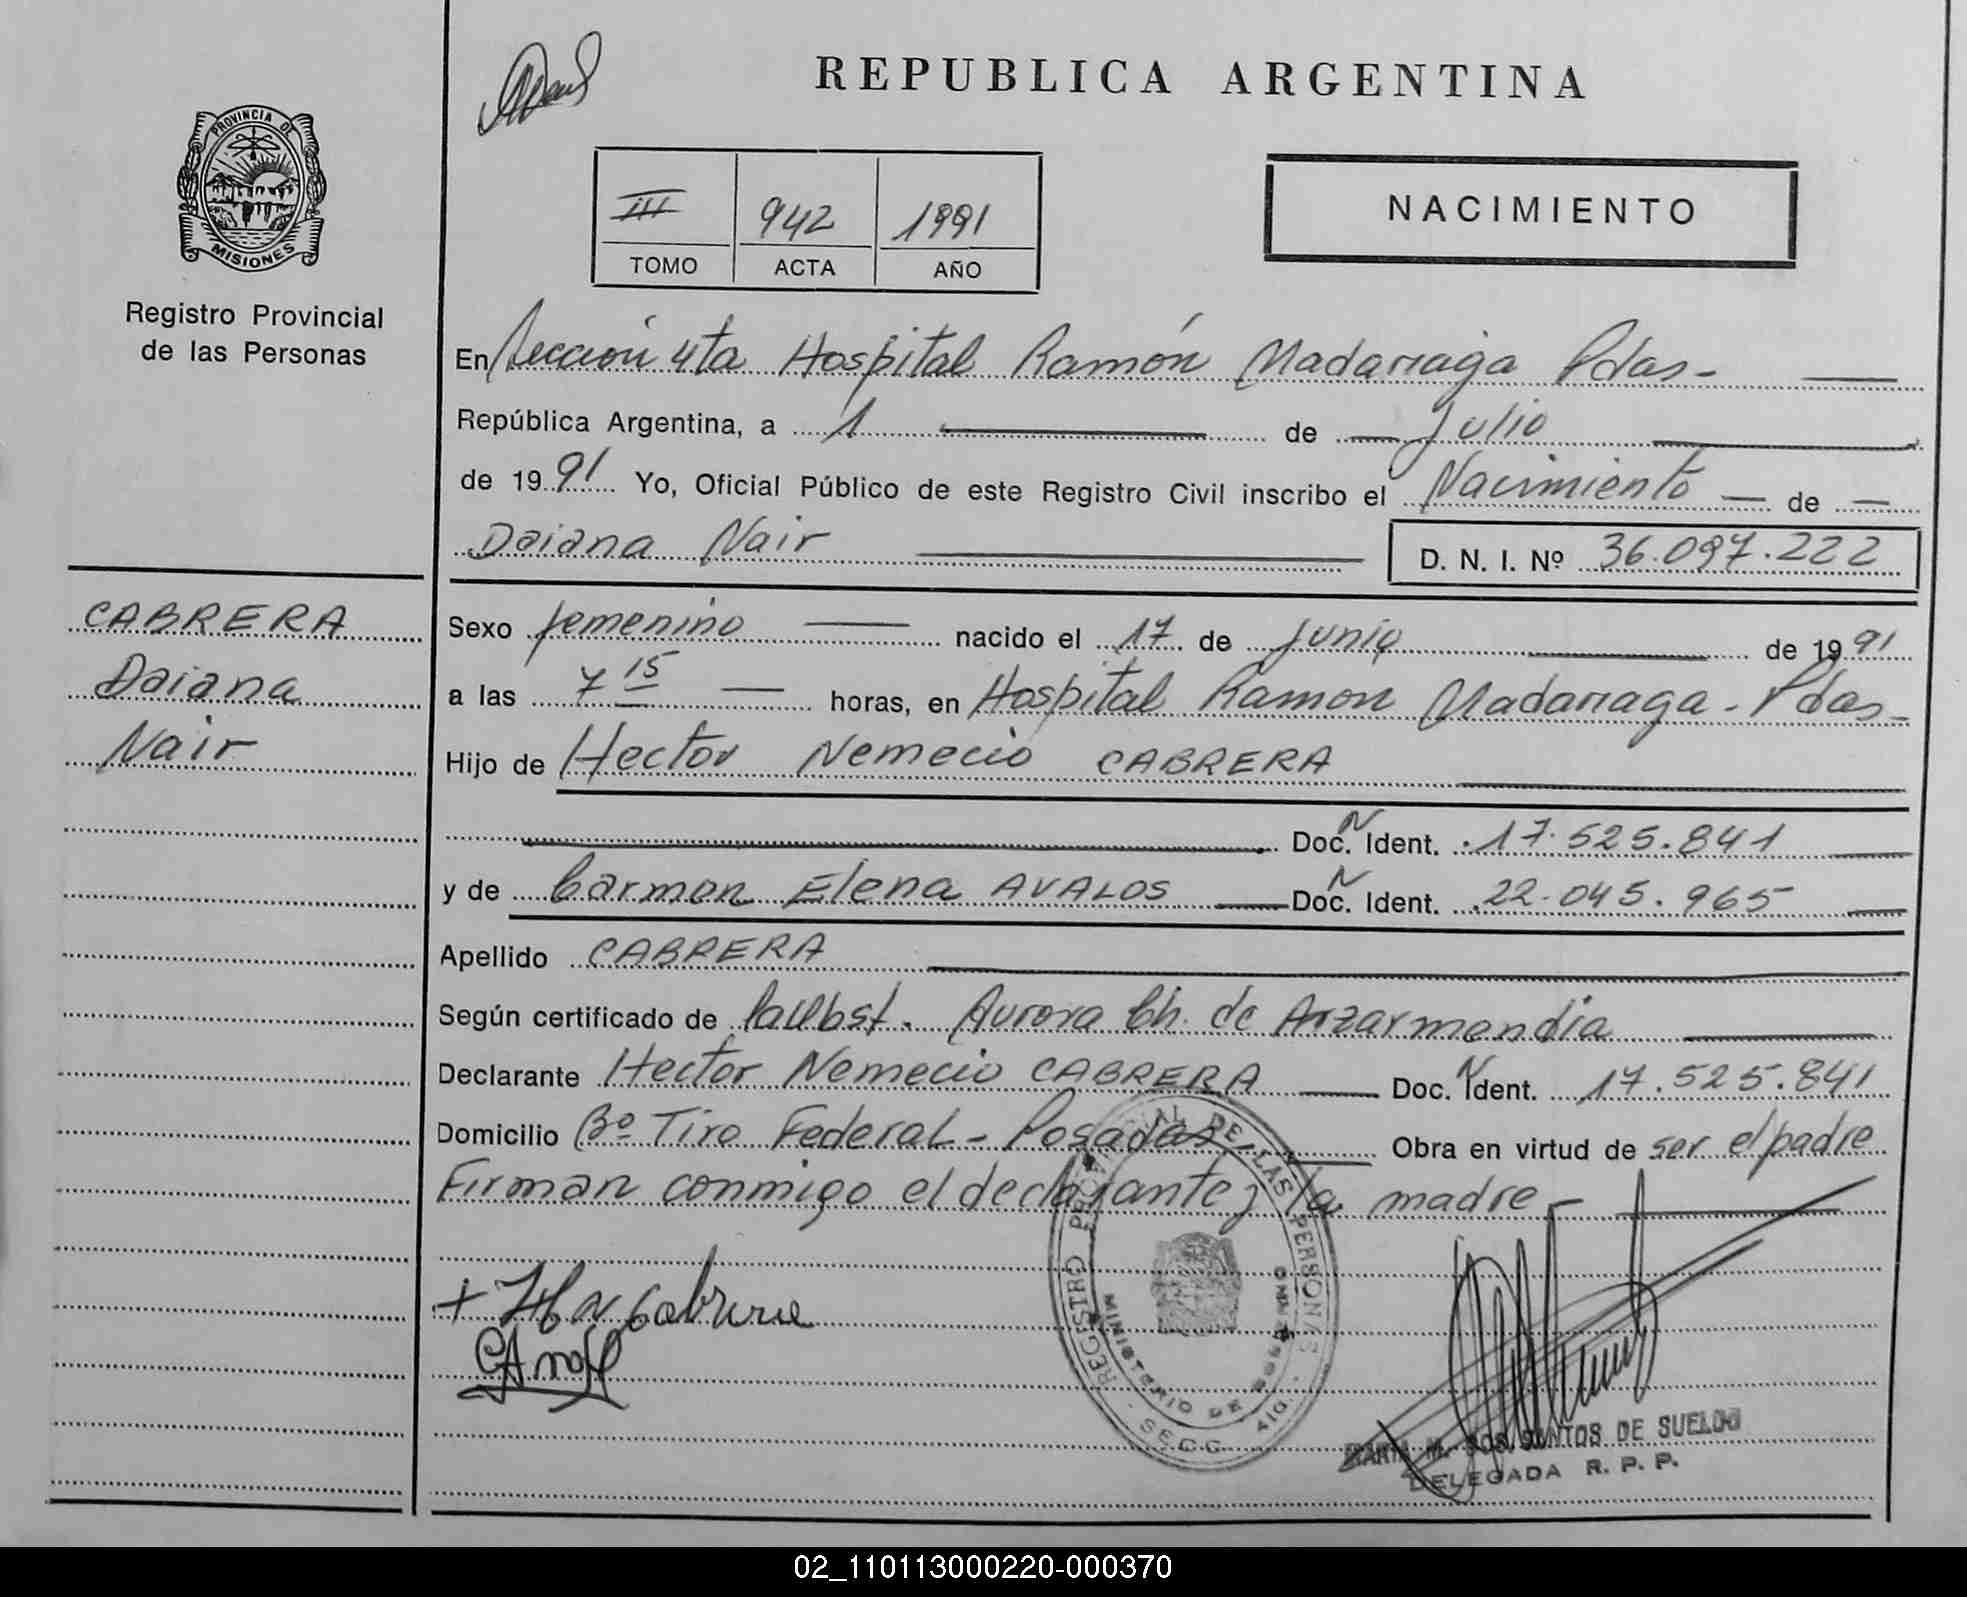 REPUBLICA ARGENTINA
PROVINCIA DE
MISIONES
Registro Provincial
de las Personas
III 942 1991
TOMO ACTA AÑO
NACIMIENTO
En Sección 4ta Hospital Ramón Madariaga Pdas-
República Argentina, a 1 de Julio
de 1991 Yo, Oficial Público de este Registro Civil inscribo el Nacimiento de
Daiana Nair D. N. I. Nº 36.097.222
CABRERA
Daiana
Nair
Sexo femenino nacido el 17 de Junio de 1991
a las 7 15 horas, en Hospital Ramon Madariaga - Pdas-
Hijo de Hector Nemecio CABRERA
Doc. N Ident. 17.525.841
y de Carmen Elena AVALOS Doc. N Ident. 22.045.965
Apellido CABRERA
Según certificado de Aurora Ch. de Arzarmendia
Declarante Hector Nemecio CABRERA Doc. N Ident. 17.525.841
Domicilio Bº Tiro Federal - Posadas Obra en virtud de ser el padre
Firman conmigo el declarante y la madre -
REGISTRO PROVINCIAL DE LAS PERSONAS
MINISTERIO DE
SECC. 4ta.
M. DOS SANTOS DE SUELDO
DELEGADA R. P. P.
02_110113000220-000370